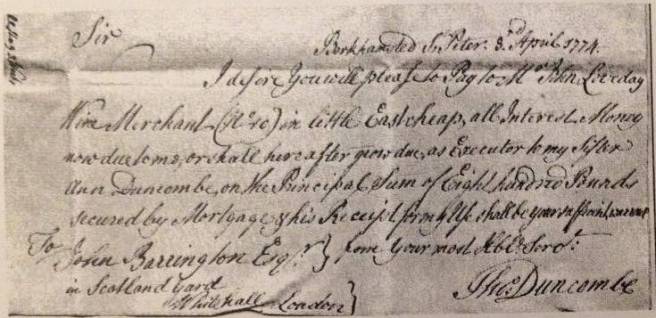 Sir
Berkhamsted St. Peter. 3d. April 1774.
I desire You will please to Pay to Mr. John Loveday
Wine Merchant (No. 10) in little Eastcheap, all Interest Money
now due to me, or shall hereafter grow due, as Executor to my Sister
Ann Duncombe, on the Principal Sum of Eight hundred Pounds
secured by Mortgage, & his Receipt for my Use shall be your sufficient warrant
To John Barrington Esqr. } from Your most Obt. Servt.
in Scotland Yard
Whitehall London }
Thos. Duncombe